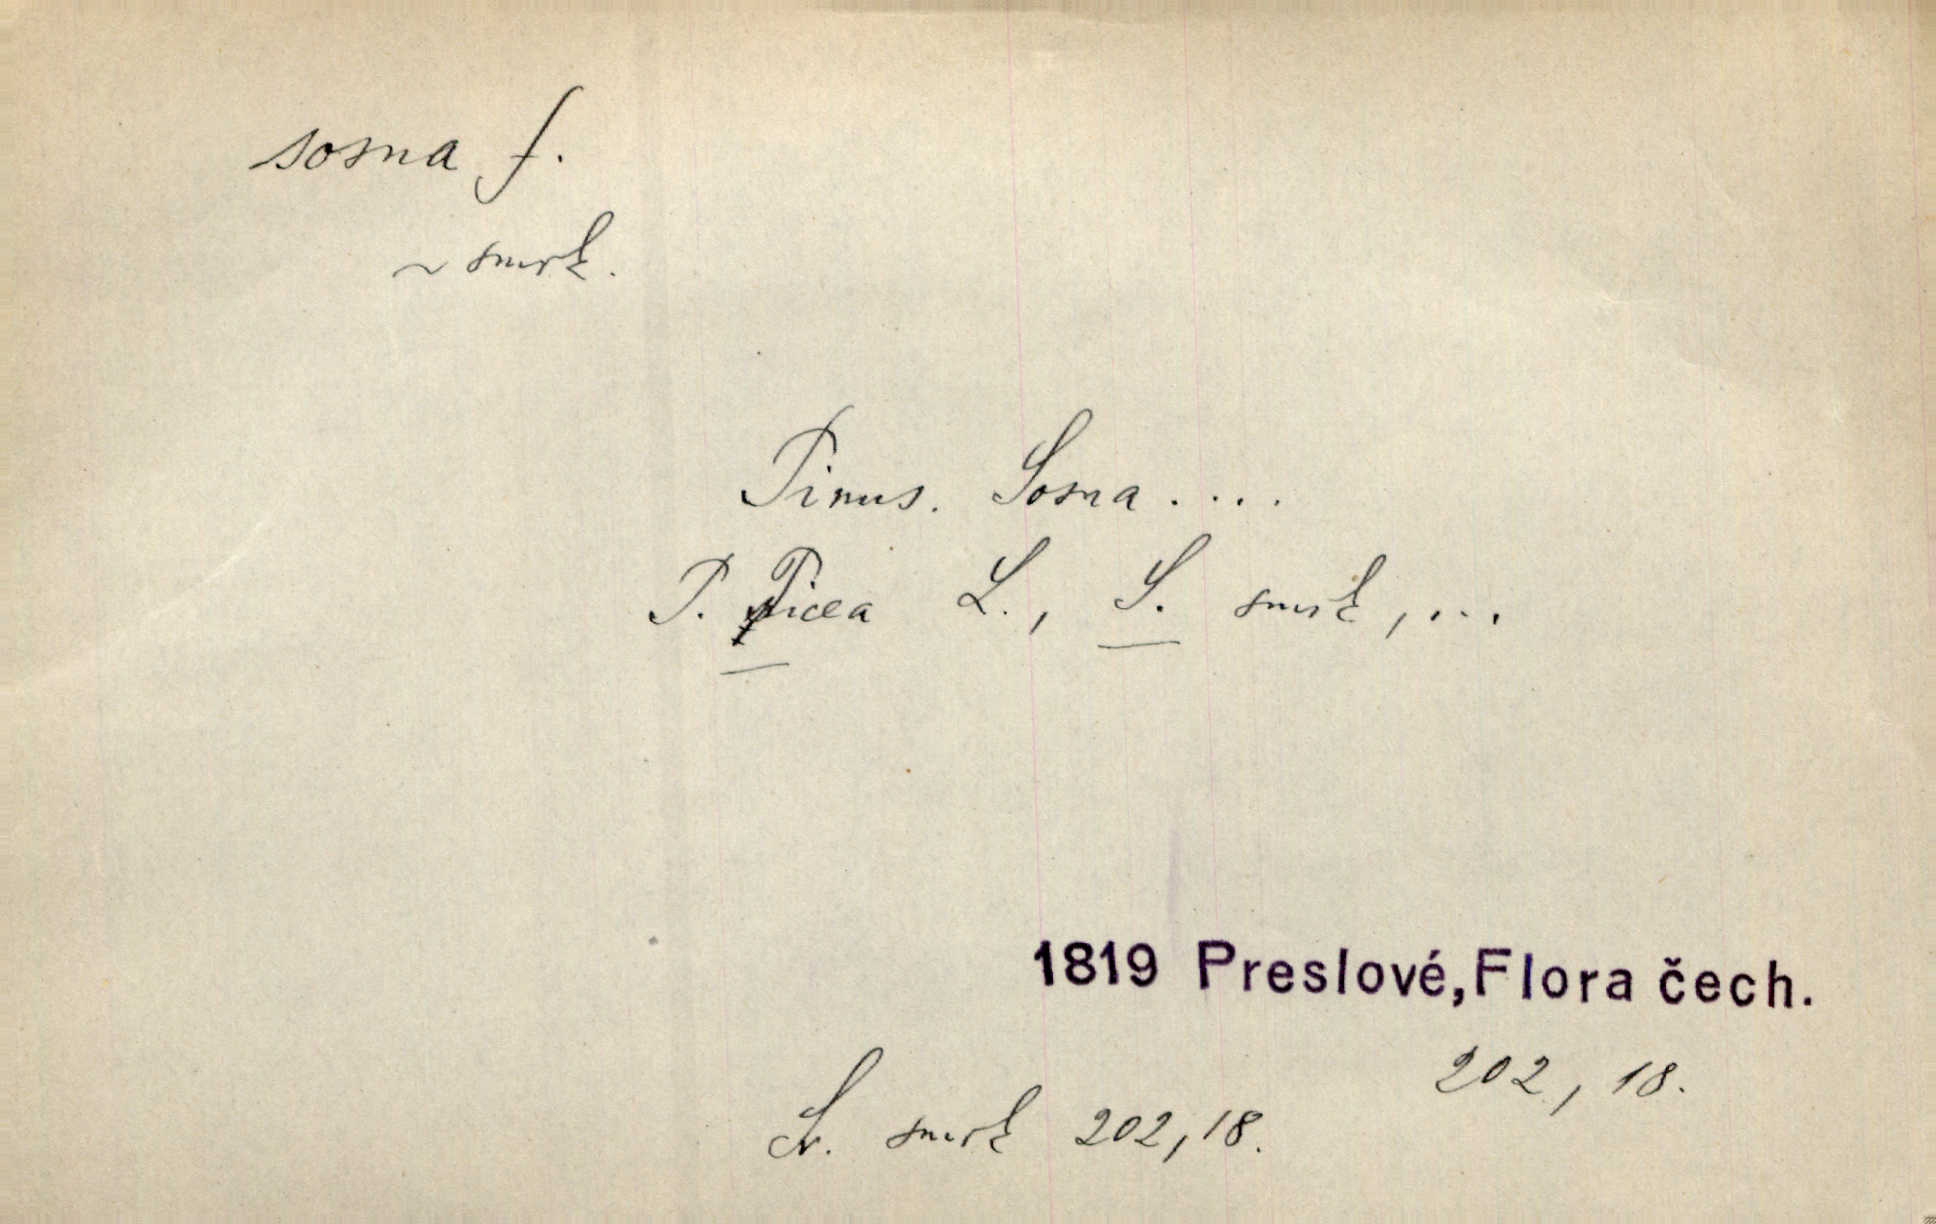 sosna f.
~ smrk.
Pinus. Sosna....
P. Picea L., S. smrk,...
1819 Preslové, Flora čech.
202, 18.
Sr. smrk 202, 18.